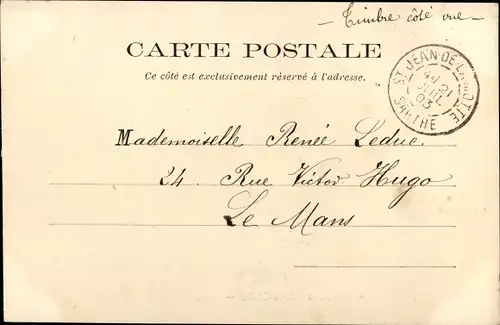 - Timbre côté vue -
CARTE POSTALE
Ce côté est exclusivement réservé à l'adresse.
ST JEAN-DE-LA-MOTTE
21
JUIL
03
SARTHE
Mademoiselle Renée Leduc
24. Rue Victor Hugo
Le Mans